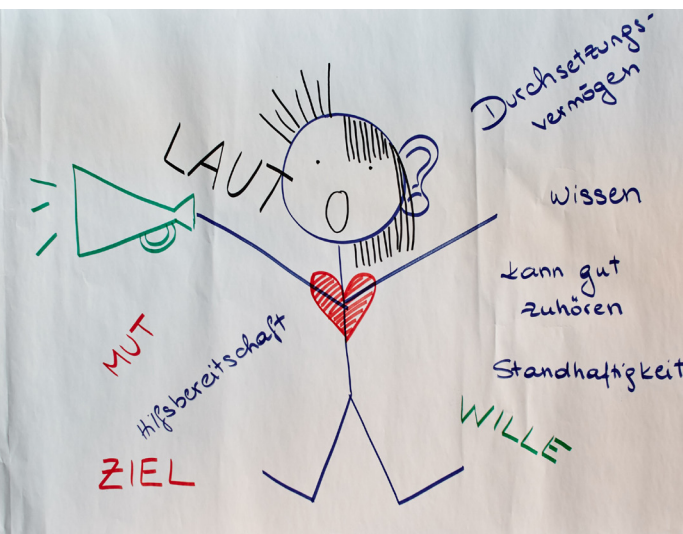 LAUT
Durchsetzungs-
vermögen
wissen
kann gut
zuhören
Standhaftigkeit
MUT
Hilfsbereitschaft
WILLE
ZIEL